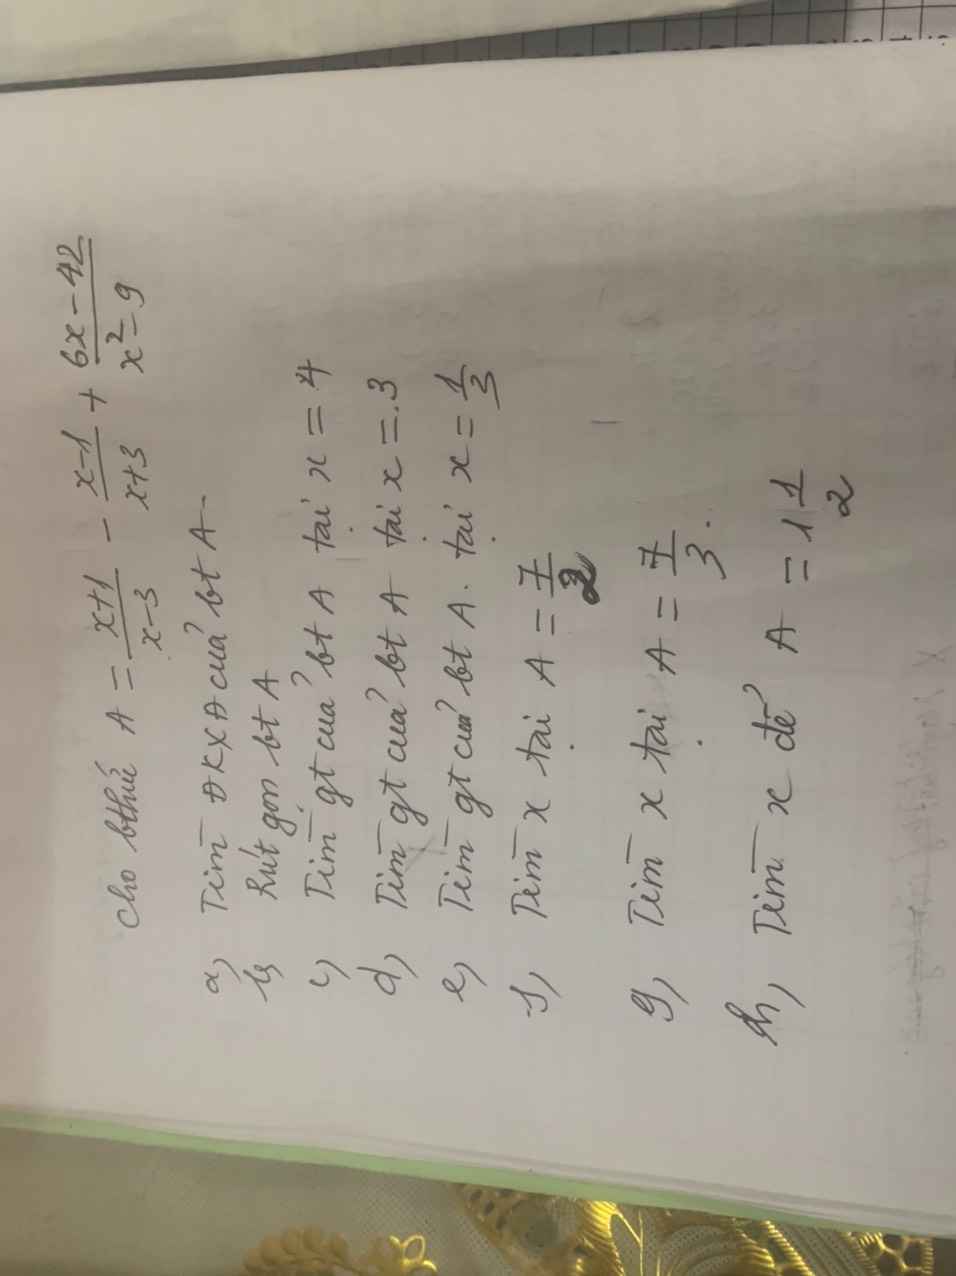 Cho bthức A = \frac{x+1}{x-3} - \frac{x-1}{x+3} + \frac{6x-42}{x^2-9}
a, Tìm ĐKXĐ của bt A.
b, Rút gọn bt A
c, Tìm gt của bt A tại x = 4
d, Tìm gt của bt A tại x = 3
e, Tìm gt của bt A. tại x = \frac{1}{3}
f, Tìm x tại A = \frac{7}{2}
g, Tìm x tại A = \frac{7}{3}.
h, Tìm x để A = 1\frac{1}{2}